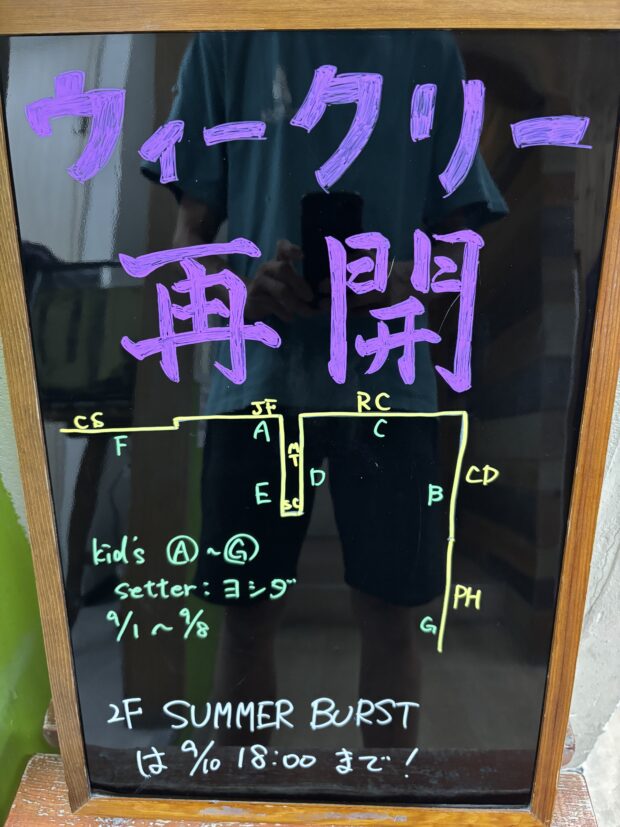 ウィークリー
再開
CS
JF
RC
F
A
MT
C
E
SC
D
B
CD
kid's Ⓐ～Ⓖ
setter：ヨシダ
9/1～9/8
PH
G
2F SUMMER BURST
は 9/10 18:00 まで！